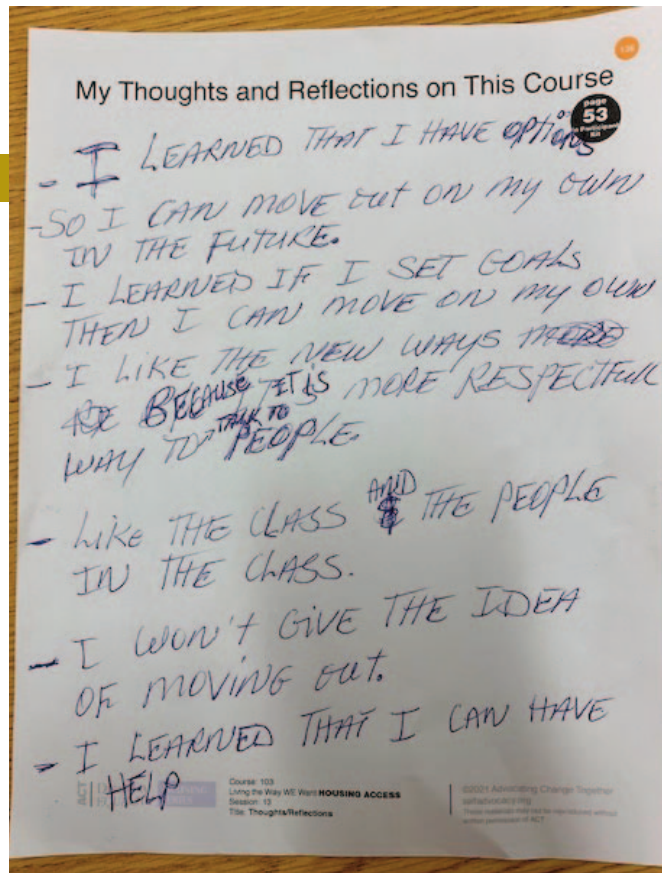 136
My Thoughts and Reflections on This Course
page
53
in Participant
Kit
- I LEARNED THAT I HAVE options
- SO I CAN MOVE out ON MY OWN
IN THE FUTURE.
- I LEARNED IF I SET GOALS
THEN I CAN MOVE ON MY OWN
- I LIKE THE NEW WAYS
BECAUSE IT IS MORE RESPECTFUL
WAY TO TALK TO PEOPLE.
- LIKE THE CLASS AND THE PEOPLE
IN THE CLASS.
- I WON't GIVE THE IDEA
OF MOVING OUt.
- I LEARNED THAT I CAN HAVE
HELP
ACT
Course: 103
Living the Way WE Want HOUSING ACCESS
Session: 13
Title: Thoughts/Reflections
©2021 Advocating Change Together
selfadvocacy.org
These materials may not be reproduced without
written permission of ACT